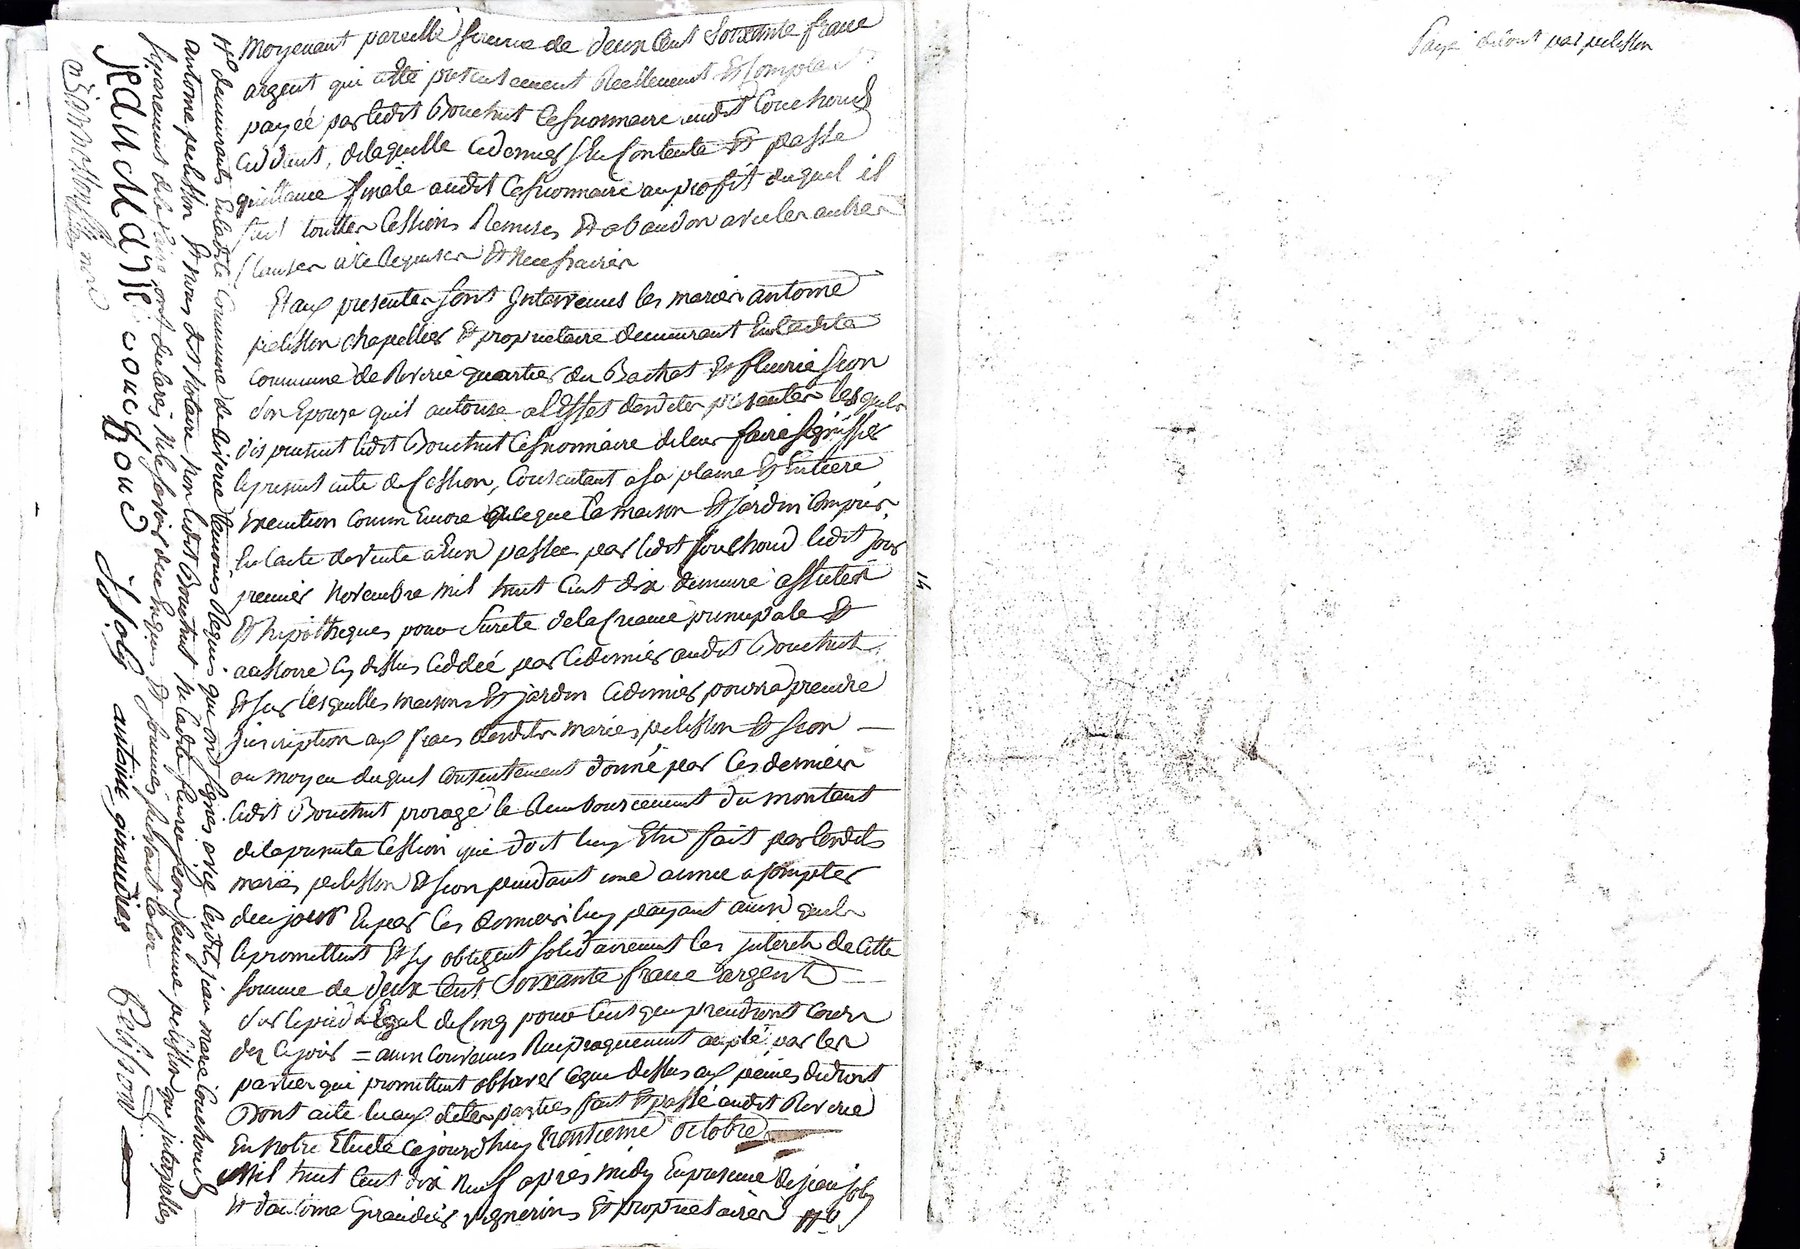 moyenant pareille somme de deux cent soixante francs
argent qui a été présentement réellement et comptan
payéé par ledit Bouchut cessionnaire audit Couchoud
cédant, de laquelle ce dernier s'en contente et passe
quittance finale audit cessionnaire au profit duquel il
fait touttes cessions remises et abandon avec les autres
clauses à ce requises et necessaires
Et aux presentes sont intervenus les mariés antoine
pelisson chapellier et proprietaire demeurant en ladite
commune de Riverie quartier du Bachat et fleurie sion
son epouze qu'il autorise a l'effet desdites presentes lesquels
dispensent ledit Bouchut cessionnaire de leur faire signiffier
le present acte de cession, consentant a sa plaine et entiere
execution comm encore que la maison et jardin compris
en l'acte de vente a eux passée par ledit Couchoud ledit jour
premier novembre mil huit cent dix demeure affectés
et hipothequés pour sureté de la creance principale et
acessoire cy dessus cedéé par ce dernier audit Bouchut
et sur lesquelles maison et jardin ce dernier pourra prendre
inscription aux frais desdits mariés pelisson et sion —
au moyen duquel consentement donné par ces derniers
ledit Bouchut proroge le remboursement du montant
de la presente cession qui doit luy etre fait par lesdits
mariés pelisson et sion pendant une année a compter
de ce jour en par ces derniers luy payant ainsi qu'ils
le promettent et s'y obligent solidairement les interets de cette
somme de deux cent soixante francs argent —
sur le pied légal de cinq pour cent qui prendront cours
dez ce jour = ainsi convenus reciproquement accepté par les
parties qui promettent observer ce que dessus aux peines de droit
Dont acte lu aux dites parties fait et passé audit Riverie
en notre etude ce jourd'huy trentieme octobre —
mil huit cent dix neuf après midy en presence de jean joly
et d'antoine Giraudier vignerons et proprietaires
demeurants en ladite commune de Riverie temoins requis qui ont signés avec lesdits jean marie Couchoud
antoine pelisson et nous dit notaire non ledit Bouchut ni ladite fleurie sion femme pelisson qui interpellés
separement de le faire ont declarés ne le savoir de ce enquis et sommés suivant la loi
jean marie couchoud j joly antoine giraudier Pelisson
14
Payé droit par pelisson